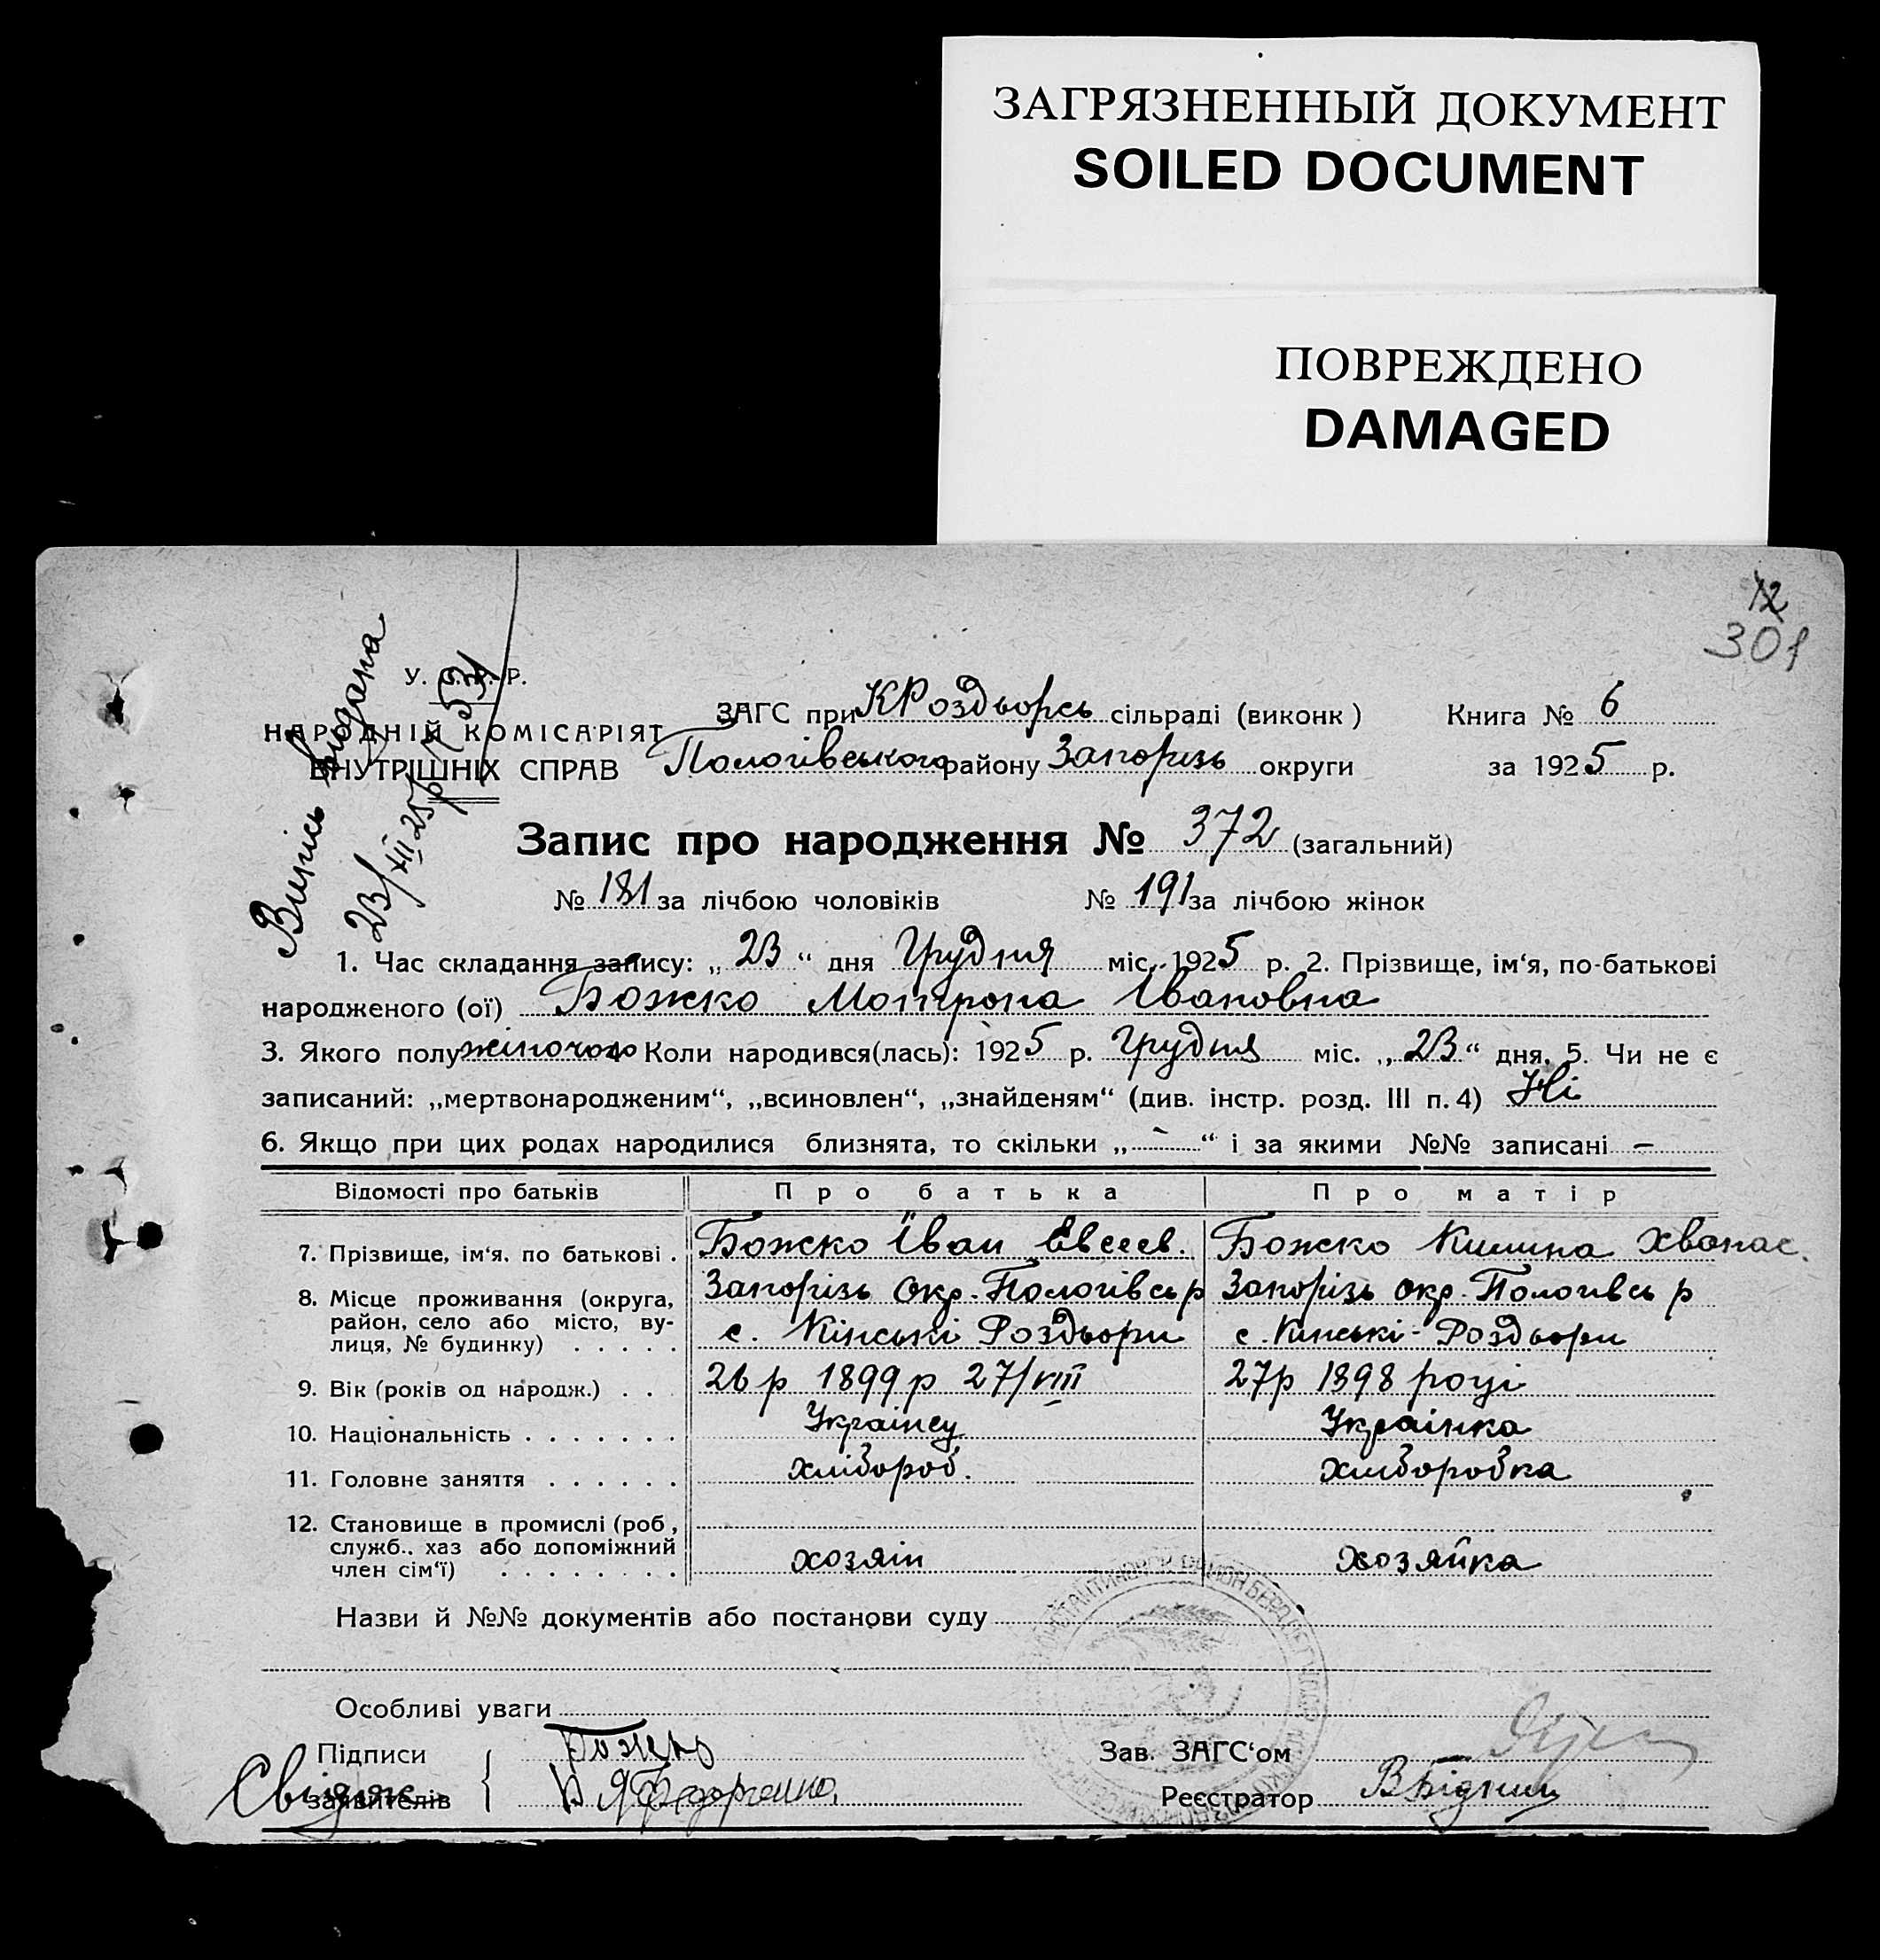 ЗАГРЯЗНЕННЫЙ ДОКУМЕНТ
SOILED DOCUMENT
ПОВРЕЖДЕНО
DAMAGED
12
301
Випись видана
23/XII 25 р. 531
У. С. Р. Р.
НАРОДНІЙ КОМІСАРІЯТ
ВНУТРІШНІХ СПРАВ
ЗАГС при КРоздорсь сільраді (виконк) Книга № 6
Пологівського району Запорізь округи за 1925 р.
Запис про народження № 372 (загальний)
№ 181 за лічбою чоловіків № 191 за лічбою жінок
1. Час складання запису: „23“ дня Грудня міс. 1925 р. 2. Прізвище, ім‘я, по-батькові
народженого (ої) Божко Мотрона Івановна
3. Якого полу жіночого Коли народився(лась): 1925 р. Грудня міс. „23“ дня. 5. Чи не є
записаний: „мертвонародженим“, „всиновлен“, „знайденям“ (див. інстр. розд. III п. 4) Ні
6. Якщо при цих родах народилися близнята, то скільки „-“ і за якими №№ записані –
Відомості про батьків Про батька Про матір
7. Прізвище, ім‘я, по батькові . Божко Іван Евсеев. Божко Килина Хванас.
8. Місце проживання (округа, район, село або місто, ву-лиця, № будинку) . . . . . Запорізь окр. Пологівсь р Запорізь окр. Пологивсь р
с. Кінські Роздори с. Кинські-Роздори
9. Вік (років од народж.) . . . 26 р 1899 р 27/VIII 27р 1898 році
10. Національність . . . . . . . Українец Українка
11. Головне заняття . . . . . . хлібороб. хлиборобка
12. Становище в промислі (роб, служб., хаз або допоміжний член сім‘ї) . . . . . . . . хозяін хозяйка
Назви й №№ документів або постанови суду
Особливі уваги
Підписи Божко Зав. ЗАГС‘ом
Свідок заявителів Реєстратор В Бідний